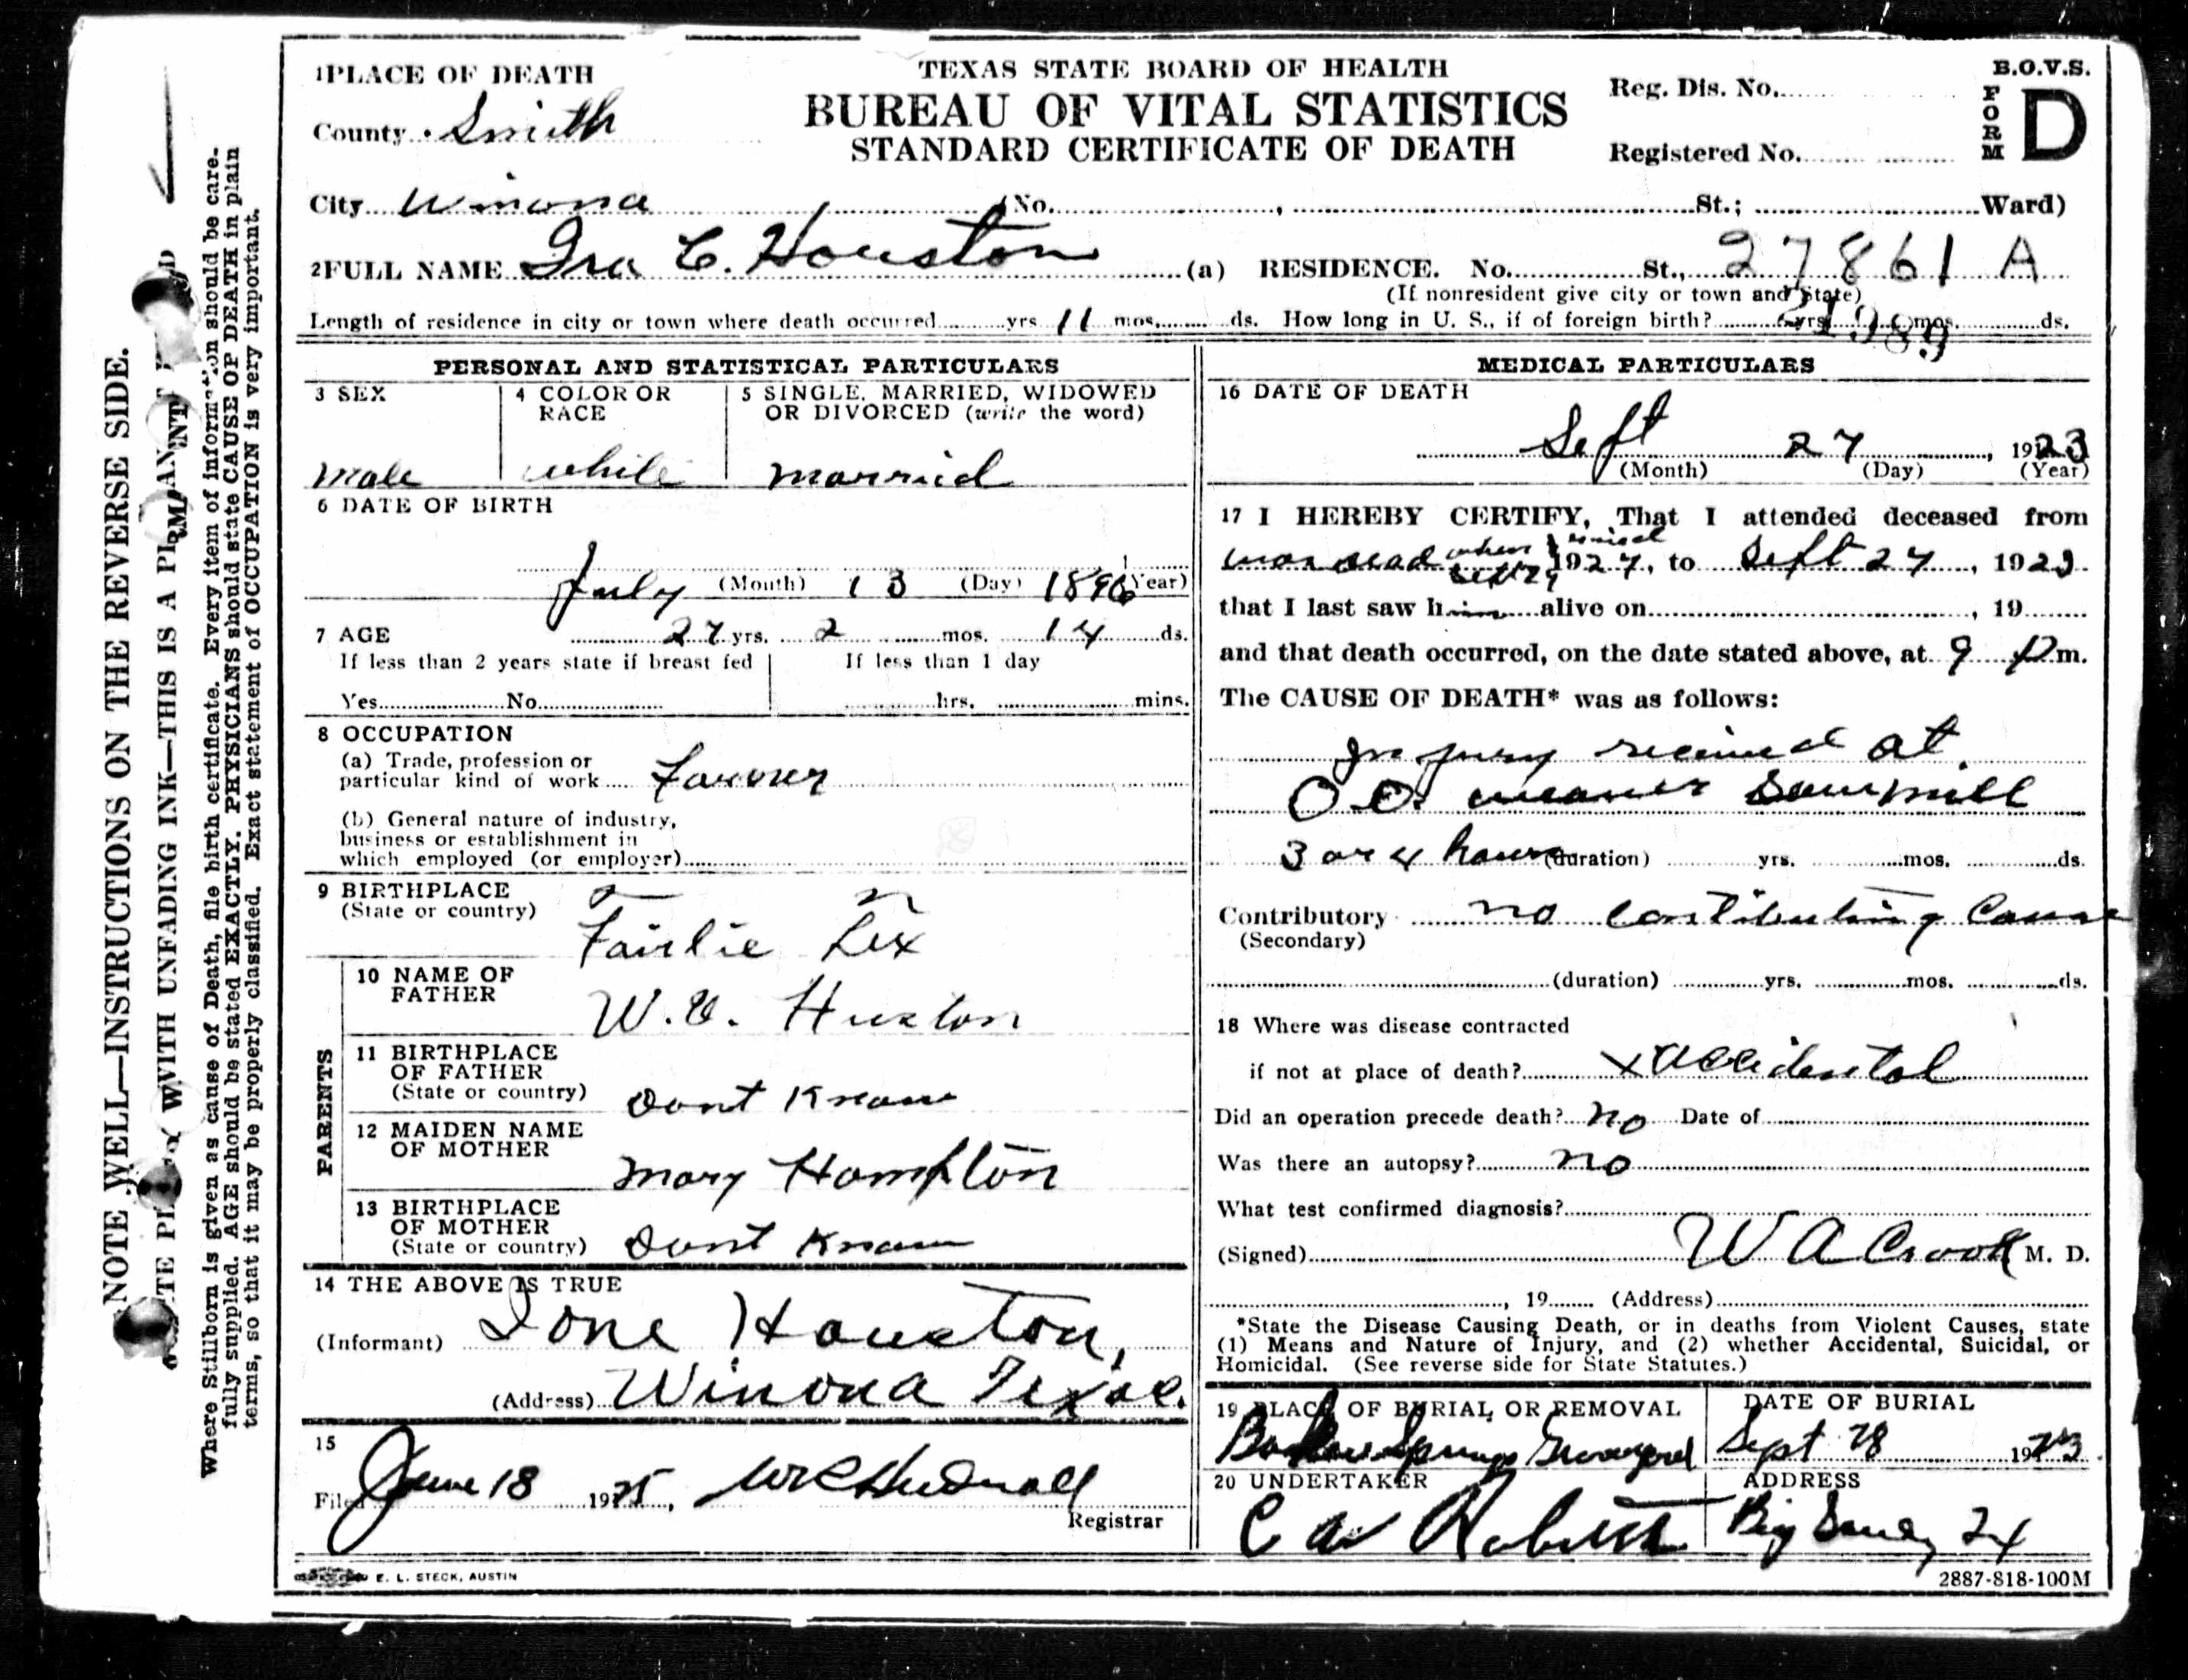 1 PLACE OF DEATH
TEXAS STATE BOARD OF HEALTH
BUREAU OF VITAL STATISTICS
STANDARD CERTIFICATE OF DEATH
Reg. Dis. No.
Registered No.
B.O.V.S.
FORM D
County Smith
City Winona (No. , St.; Ward)
2 FULL NAME Ira C. Houston (a) RESIDENCE. No. St., 27861 A
(If nonresident give city or town and State)
21989
Length of residence in city or town where death occurred yrs. 11 mos. ds. How long in U. S., if of foreign birth? yrs. mos. ds.
PERSONAL AND STATISTICAL PARTICULARS
3 SEX
male
4 COLOR OR RACE
white
5 SINGLE, MARRIED, WIDOWED
OR DIVORCED (write the word)
married
6 DATE OF BIRTH
July (Month) 13 (Day) 1896 (Year)
7 AGE 27 yrs. 2 mos. 14 ds.
If less than 2 years state if breast fed
Yes No
If less than 1 day
hrs. mins.
8 OCCUPATION
(a) Trade, profession or
particular kind of work Farmer
(b) General nature of industry,
business or establishment in
which employed (or employer)
9 BIRTHPLACE
(State or country) Fairlie Tex
PARENTS
10 NAME OF
FATHER W. Huston
11 BIRTHPLACE
OF FATHER
(State or country) Dont Know
12 MAIDEN NAME
OF MOTHER Mary Hampton
13 BIRTHPLACE
OF MOTHER
(State or country) Dont Know
14 THE ABOVE IS TRUE
(Informant) Ione Houston,
(Address) Winona Texas.
15
Filed June 18 1925, Registrar
E. L. STECK, AUSTIN
MEDICAL PARTICULARS
16 DATE OF DEATH
Sept 27, 1923
(Month) (Day) (Year)
17 I HEREBY CERTIFY, That I attended deceased from
was dead when I arived
Sept 27 1927, to Sept 27, 1923
that I last saw him alive on , 19
and that death occurred, on the date stated above, at 9 P m.
The CAUSE OF DEATH* was as follows:
Injury received at
O.O. weaver Sawmill
3 or 4 hours (duration) yrs. mos. ds.
Contributory no contributing Cause
(Secondary)
(duration) yrs. mos. ds.
18 Where was disease contracted
if not at place of death? x accidental
Did an operation precede death? No Date of
Was there an autopsy? no
What test confirmed diagnosis?
(Signed) W A Crook M. D.
, 19 (Address)
*State the Disease Causing Death, or in deaths from Violent Causes, state
(1) Means and Nature of Injury, and (2) whether Accidental, Suicidal, or
Homicidal. (See reverse side for State Statutes.)
19 PLACE OF BURIAL OR REMOVAL
Springs Graveyard
DATE OF BURIAL
Sept 28 1923
20 UNDERTAKER
C W Roberts
ADDRESS
Big Sandy Tx
2887-818-100M
NOTE WELL—INSTRUCTIONS ON THE REVERSE SIDE.
WITH UNFADING INK—THIS IS A PERMANENT
Where Stillborn is given as cause of Death, file birth certificate. Every item of information should be care-
fully supplied. AGE should be stated EXACTLY. PHYSICIANS should state CAUSE OF DEATH in plain
terms, so that it may be properly classified. Exact statement of OCCUPATION is very important.